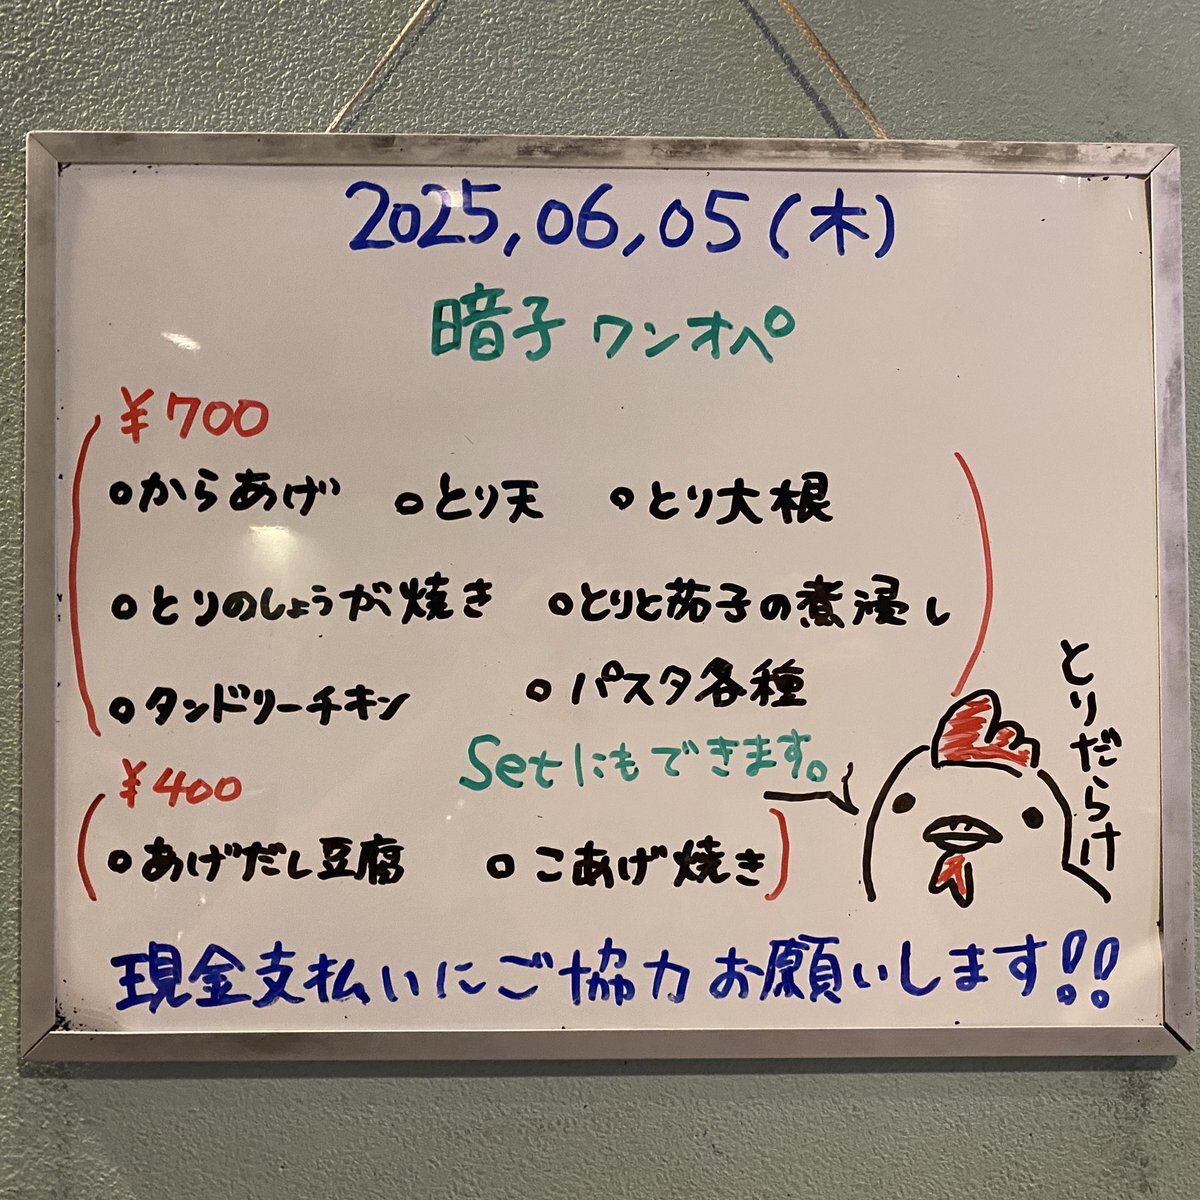 2025,06,05(木)
暗子 ワンオペ
¥700
○からあげ ○とり天 ○とり大根
○とりのしょうが焼き ○とりと茄子の煮浸し
○タンドリーチキン ○パスタ各種
Setにもできます。
とりだらけ
¥400
○あげだし豆腐 ○こあげ焼き
現金支払いにご協力お願いします!!